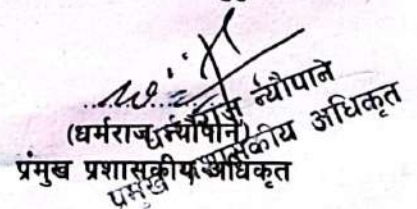 (धर्मराज न्यौपाने)
प्रमुख प्रशासकीय अधिकृत
धर्मराज न्यौपाने
प्रमुख प्रशासकीय अधिकृत